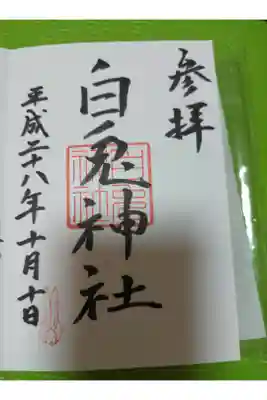 参拝
白兎神社
平成二十八年十月十日